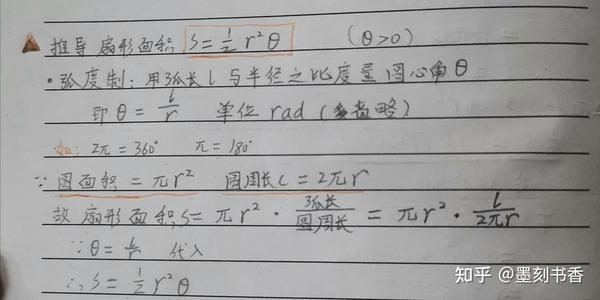 推导 扇形面积 S=½r²θ (θ>0)
·弧度制：用弧长l与半径之比度量圆心角θ
即θ=l/r 单位rad（省略）
如：2π=360° π=180°
∵圆面积=πr² 圆周长C=2πr
故扇形面积S=πr²·弧长/圆周长=πr²·l/2πr
∵θ=l/r 代入
∴S=½r²θ
知乎 @墨刻书香